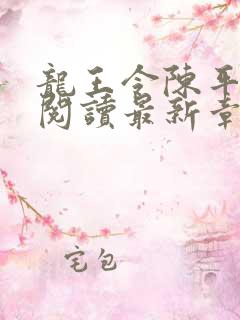 龍王令陳平
閱讀最新章
宅包